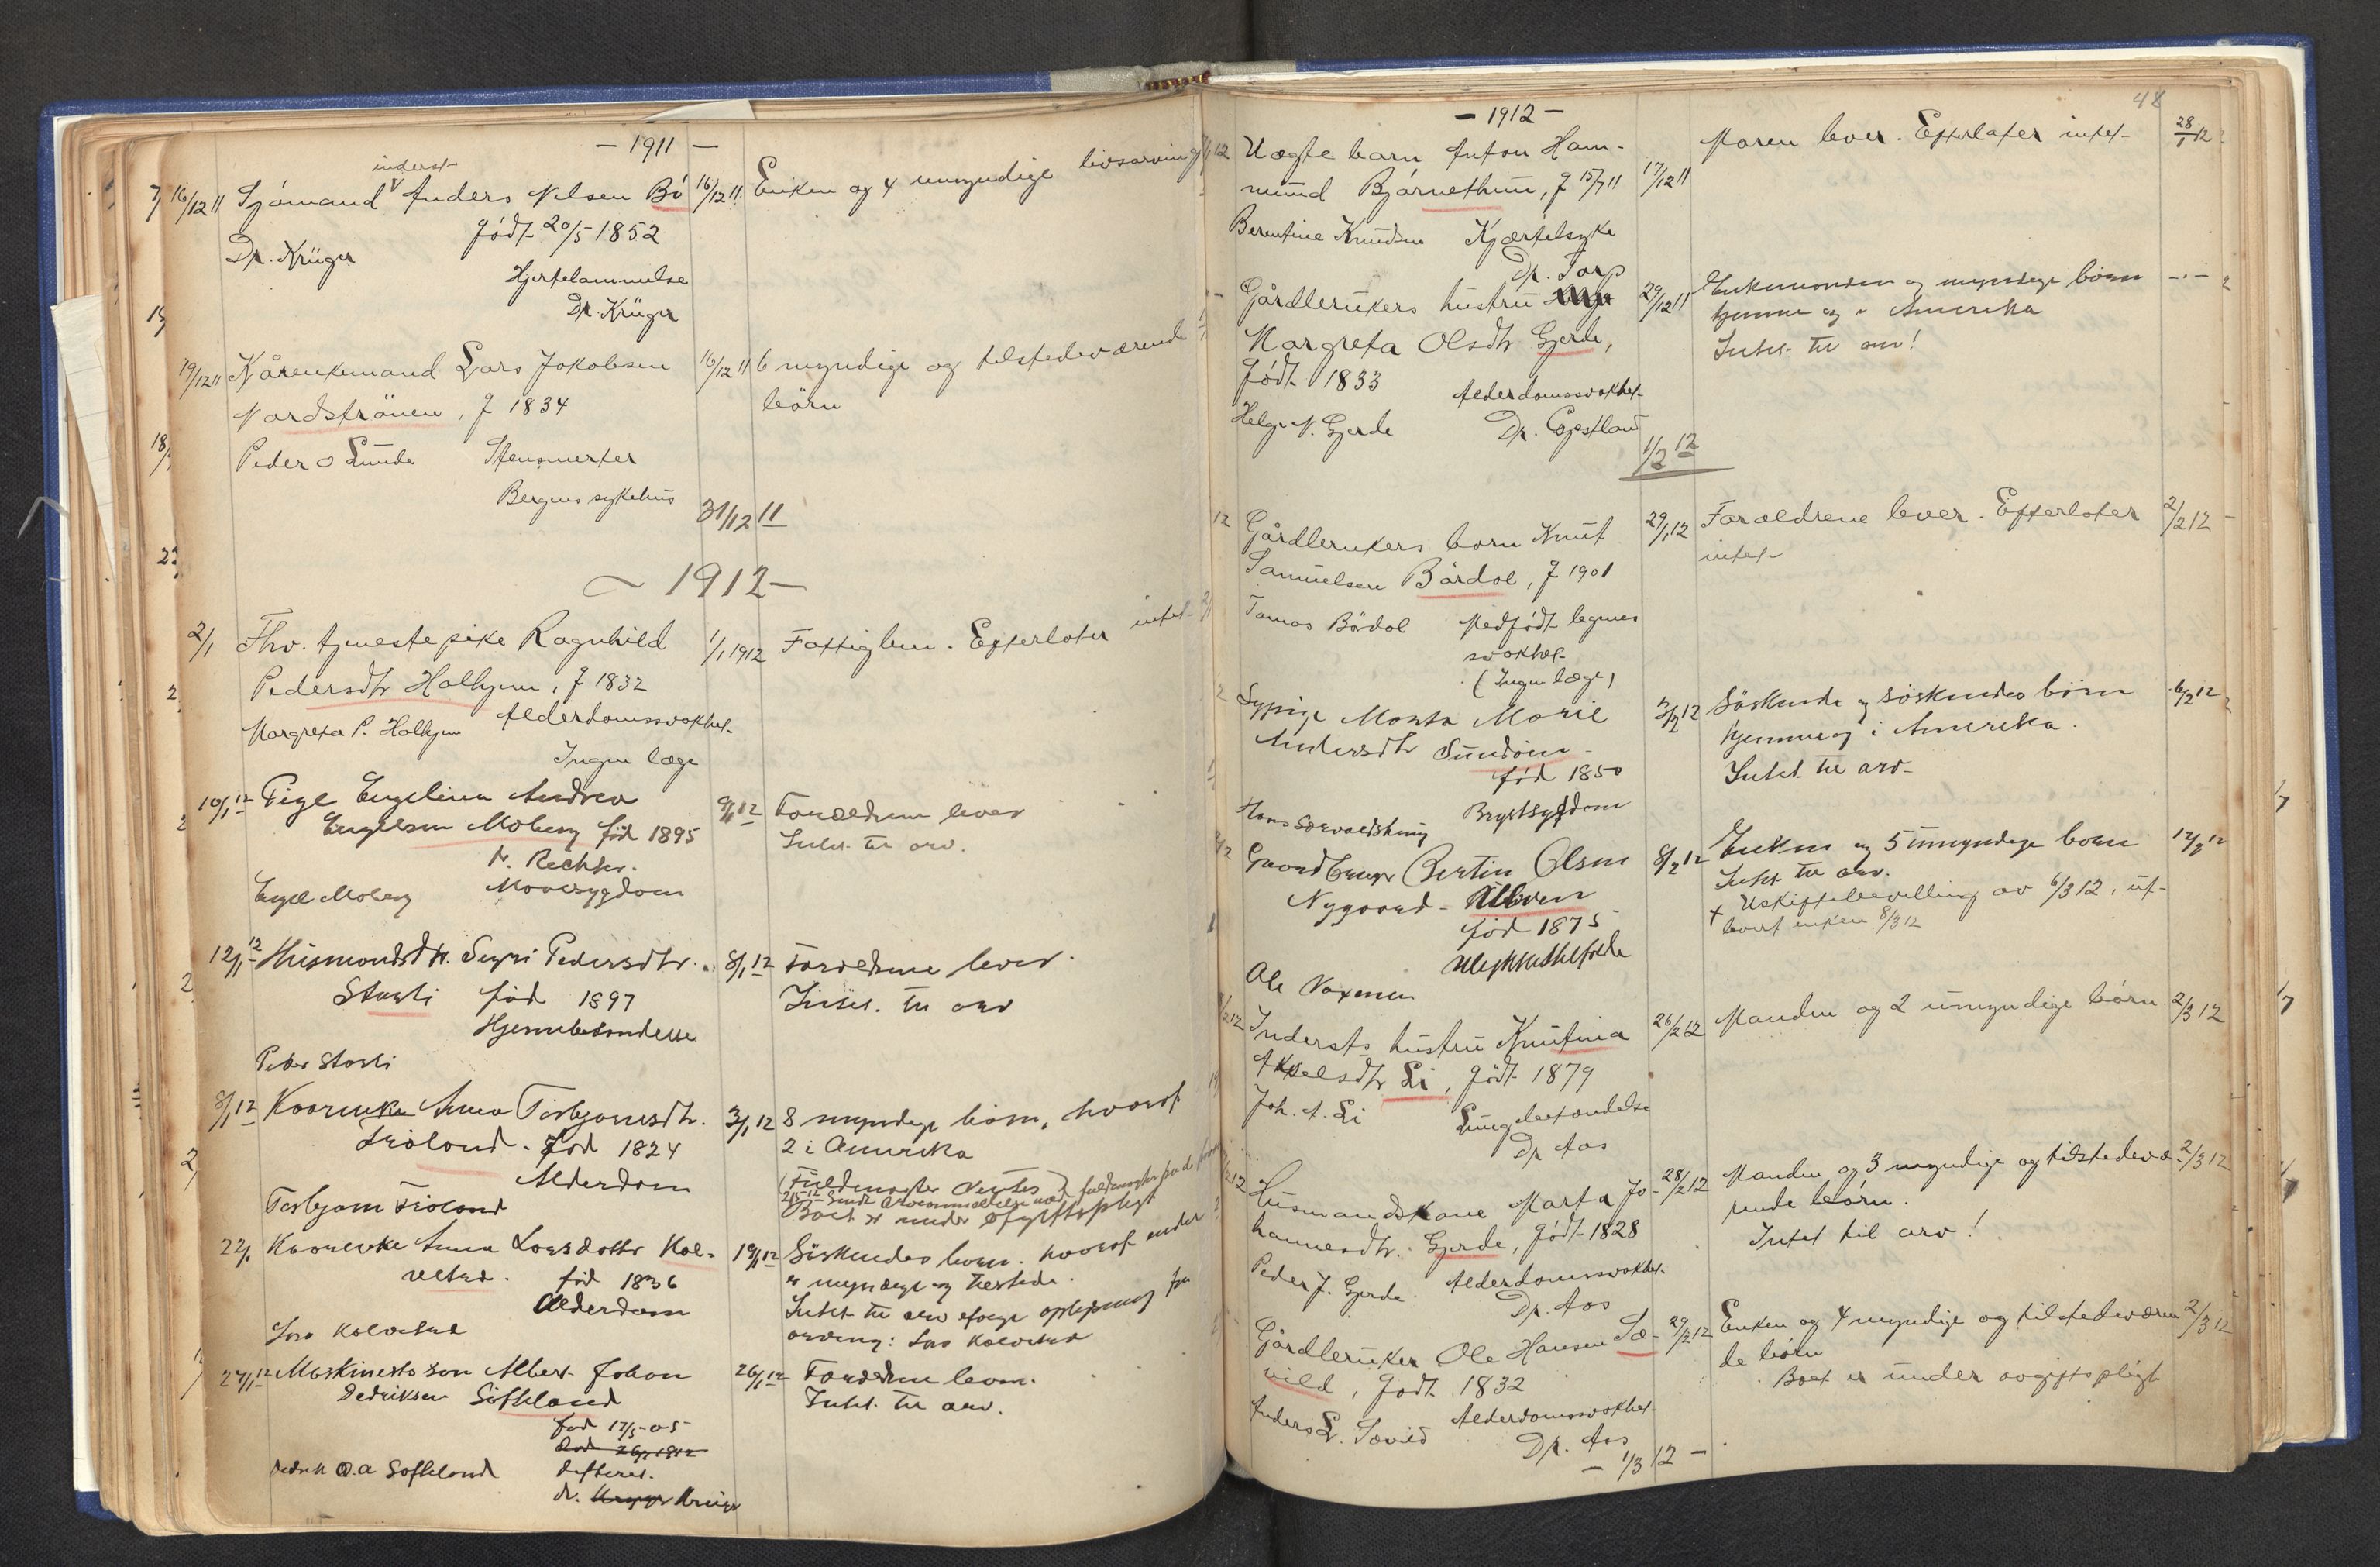 - 1911 -
inderst
16/12 11 Sjömand Anders Nilsen Bö 16/12 11 Enken og 4 umyndige livsarving
født 20/5 1852
Dr. Krüger
Hjertelammelse
Dr. Krüger
19/12 11 Kårenkemand Lars Jakobsen 16/12 11 6 myndige og tilstedeværende
Nordströnen, f 1834 börn
Peder O Lunde Stensmerter
Bergens sykehus
31/12 11
- 1912 -
2/1 Fhv. tjenestepike Ragnhild 1/1 1912 Fattiglem. Efterlater intet
Pedersdtr Holhjem, f 1832
Margreta P. Holhjem Alderdomssvakhet
Ingen læge
10/1 12 Pige Engelina Andrea 9/1 12 Forældrene lever
Engelsen Moberg fød 1895 Intet til arv.
Engel Moberg Mavesygdom
12/1 12 Husmandsdtr. Sygni Pedersdtr. 8/1 12 Forældrene lever.
Storli fød 1897 Intet til arv
Hjernebetændelse
Peder Storli
8/1 12 Kaarenke Anna Torbjørnsdtr. 3/1 12 8 myndige børn, hvoraf
fød 1824 2 i Amerika
Alderdom (Fuldmagter ventes)
Boet er under afgiftspligt
22/1 Kaarenke Anna Larsdatter Kol- 19/1 12 Söskendes børn. hvoraf
vetved. fød 1836 er myndige og tilstede.
Alderdom Intet til arv ifølge oplysning fra
Lars Kolvetved arving: Lars Kolvetved
27/1 12 Maskinists søn Albert Johan 26/1 12 Forældrene lever.
Dedriksen Søfteland Intet til arv.
fød 17/5-05
Difteri.
Dedrik O.A Søfteland
dr. Krüger
- 1912 - 48
12 Uægte barn Anton Ham- 17/12 11 Moren lever. Efterlater intet 28/1 12
mund Bjørnethun, f 15/7 11
Berntine Knudsen Kjærtelsyke
Dr. Torp
Gårdbrukers hustru 29/12 11 Enkemanden og myndige børn -"-
Margreta Olsdtr Gjerde, hjemme og i Amerika
født 1833 Alderdomssvakhet Intet til arv!
Helge N. Gjerde Dr.
1/2 12
12 Gårdbrukers barn Knut 29/1 12 Forældrene lever. Efterlater 2/2 12
Samuelsen Bårdol, f 1901 intet
Tomas Bårdol Medfödt legems
svakhet
(Ingen læge)
Sypige Marta Marie 3/2 12 Söskende og söskendes börn 6/2 12
Andersdtr Sundøen hjemme og i Amerika.
fød 1850 Intet til arv
Brystsygdom
Gaardbruger Bertin Olsen 8/2 12 Enken og 5 umyndige børn 12/2 12
Nygaard - Ulven Intet til arv.
fød 1875 + Uskiftebevilling av 6/3 12, ut-
levert enken 8/3 12
Ole
2/2 12 Inderts hustru Knutina 26/2 12 Manden og 2 umyndige börn. 2/3 12
Akselsdtr Li, född 1879
Joh. A. Li Lungebetændelse
Dr Aas
Husmandskone Marta Jo- 28/2 12 Manden og 3 myndige og tilstedevæ- 2/3 12
hannesdtr. Gjerde, född 1828 rende börn.
Intet til arv!
Peder J. Gjerde Alderdomssvakhet
Dr. Aas
Gårdbruker Ole Hansen Sæ- 29/2 12 Enken og 4 myndige og tilstedeværen 2/3 12
vild, född 1832 de börn
Boet er under avgiftspligt
Anders L. Sævild Alderdomssvakhet
Dr. Aas
- 1/3 12 -